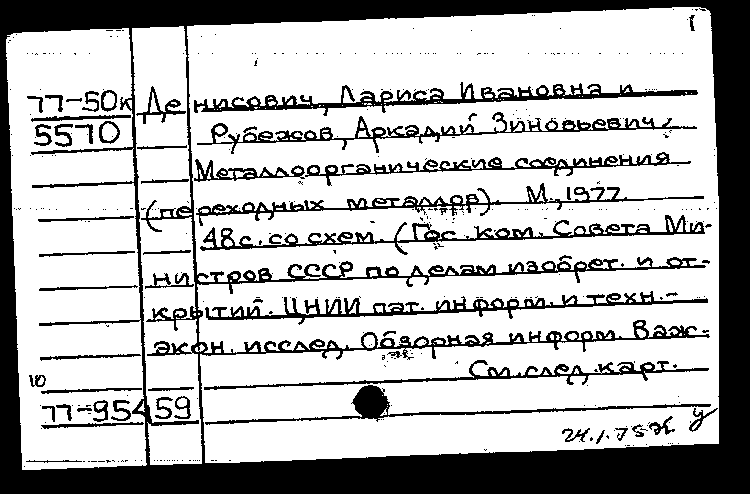 1
77-50к Денисович, Лариса Ивановна и
5570 Рубежов, Аркадий Зиновьевич.
Металлоорганические соединения
(переходных металлов). М., 1977.
48с. со схем. (Гос. ком. Совета Ми-
нистров СССР по делам изобрет. и от-
крытий. ЦНИИ пат. информ. и техн.-
экон. исслед. Обзорная информ. Важ-
См. след. карт.
10
77-95459
24.1.75